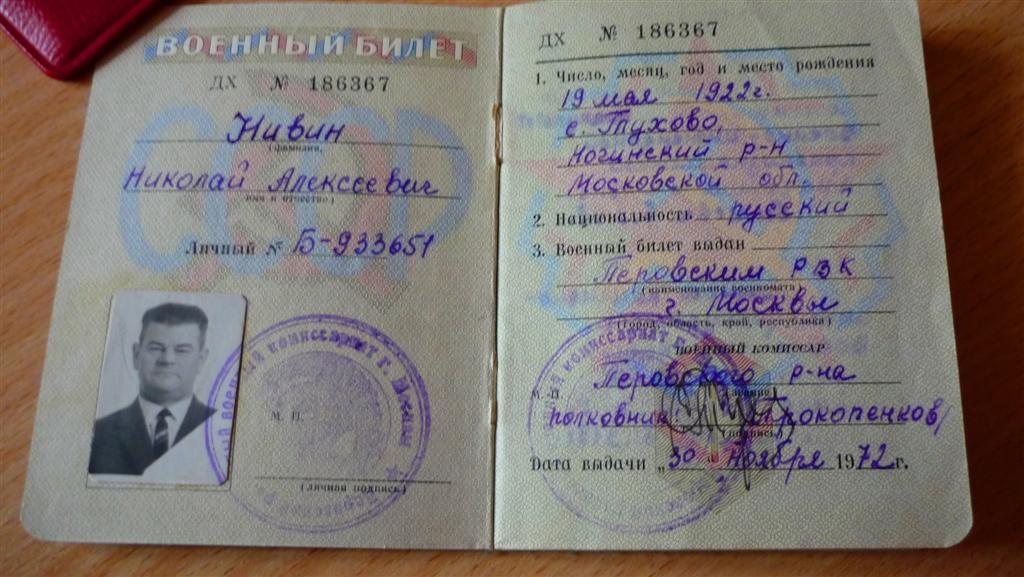 ВОЕННЫЙ БИЛЕТ
ДХ № 186367
Нивин
(фамилия,
Николай Алексеевич
имя и отчество)
Личный № Б-933651
М. П.
(личная подпись)
ДХ № 186367
1. Число, месяц, год и место рождения
19 мая 1922г.
с. Глухово,
Ногинский р-н
Московской обл.
2. Национальность русский
3. Военный билет выдан
Перовским РВК
(наименование военкомата)
г. Москвы
(город, область, край, республика)
ВОЕННЫЙ КОМИССАР
Перовского р-на
М. П. (звание)
полковник Прокопенков/
(подпись)
Дата выдачи „30" ноября 1972г.